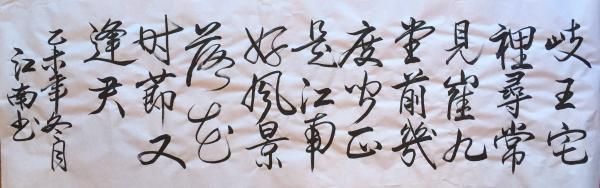 岐王宅
裡尋常
見崔九
堂前幾
度闻正
是江南
好風景
落花
时節又
逢君
乙未年冬月
江南书